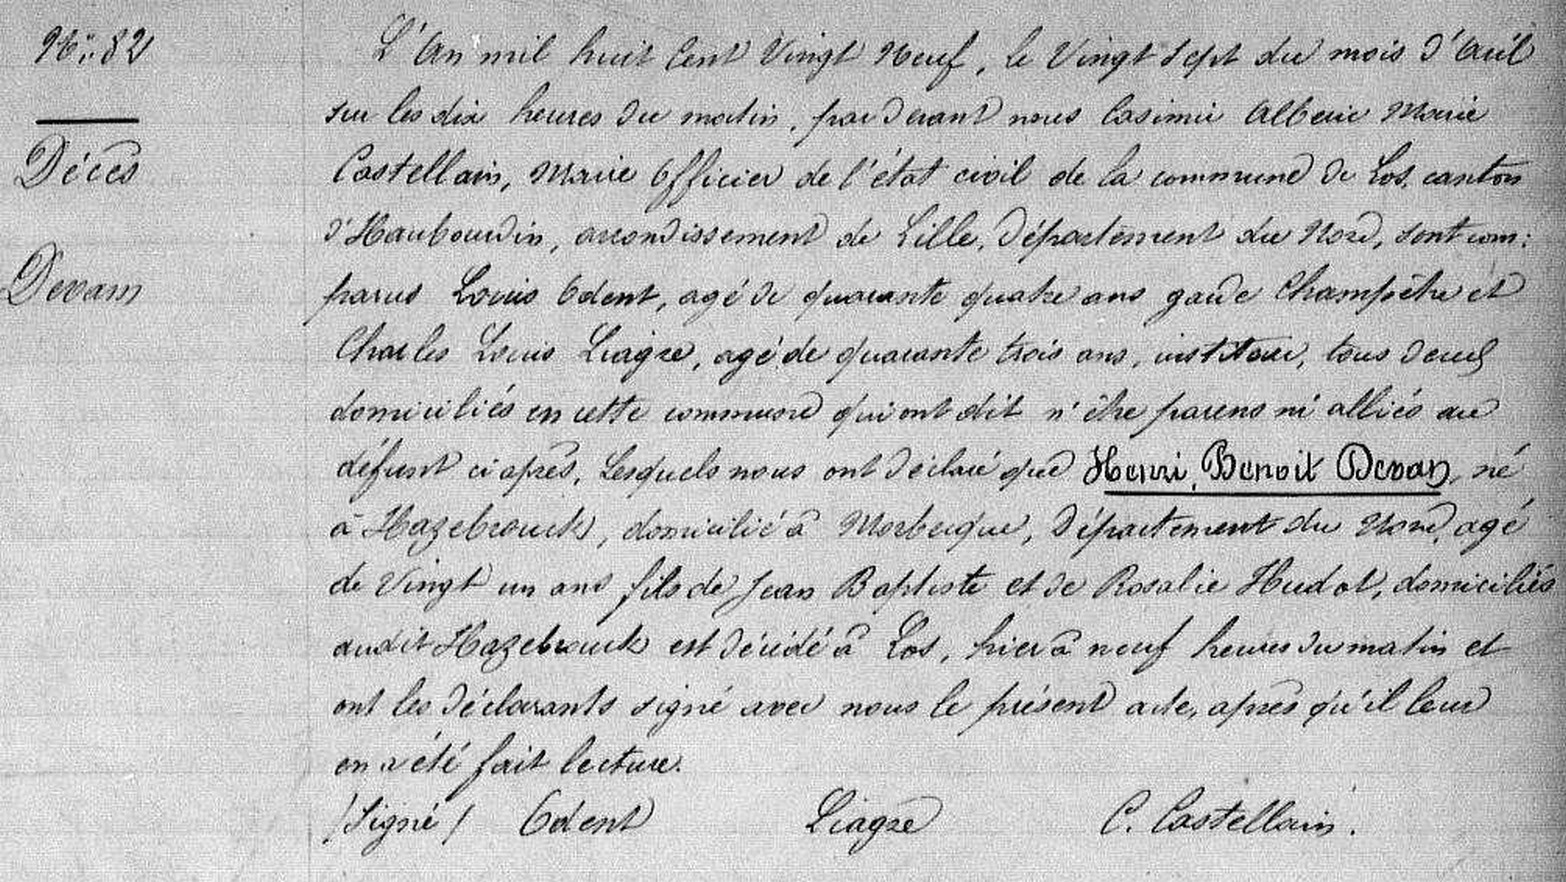 No. 82
Décès
Devam
L'An mil huit Cent Vingt Neuf, le Vingt Sept du mois d'Avril
sur les dix heures du matin, par devant nous Casimir Alberic Marie
Castellain, Maire Officier de l'état civil de la commune de Los, canton
d'Haubourdin, arrondissement de Lille, Département du Nord, sont com:
parus Louis Odent, agé de quarante quatre ans garde Champêtre et
Charles Louis Liagre, agé de quarante trois ans, instituteur, tous deux
domiciliés en cette commune qui ont dit n'être parens ni alliés au
défunt ci après, Lesquels nous ont déclaré que Henri, Benoit Devan, né
à Hazebrouck, domicilié à Morbecque, Département du Nord, agé
de Vingt un ans fils de Jean Baptiste et de Rosalie Hudot, domiciliés
audit Hazebrouck est décédé à Los, hier à neuf heures du matin et
ont les déclarants signé avec nous le présent acte, après qu'il leur
en a été fait lecture.
/Signé/ Odent Liagre C. Castellain.